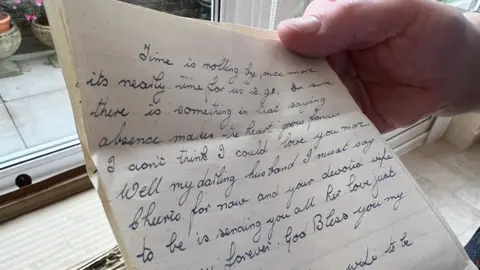 Time is rolling by, once more
its nearly time for us to go. Im sure
there is something in that saying
absence makes the heart grow fonder
I don't think I could love you more
Well my darling husband I must say
Cheerio for now and your devoted wife
to be is sending you all her love just
forever. God Bless you my
wife to be